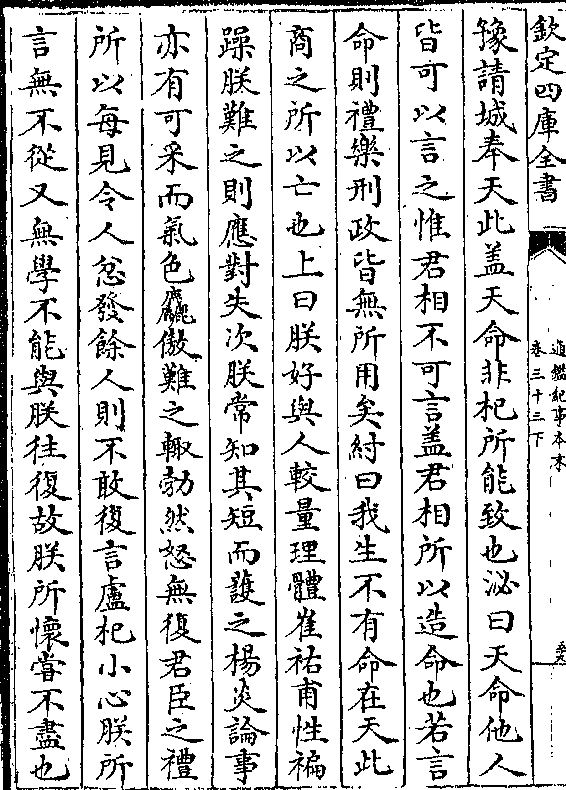 欽定四庫全書
通鑑紀事本末
卷三十三下
豫請城奉天此盖天命非杞所能致也泌曰天命他人
皆可以言之惟君相不可言盖君相所以造命也若言
命則禮樂刑政皆無所用矣紂曰我生不有命在天此
商之所以亡也上曰朕好與人較量理體崔祐甫性褊
躁朕難之則應對失次朕常知其短而護之楊炎論事
亦有可采而氣色麤傲難之輙勃然怒無復君臣之禮
所以每見令人忿發餘人則不敢復言盧杞小心朕所
言無不從又無學不能與朕往復故朕所懷嘗不盡也